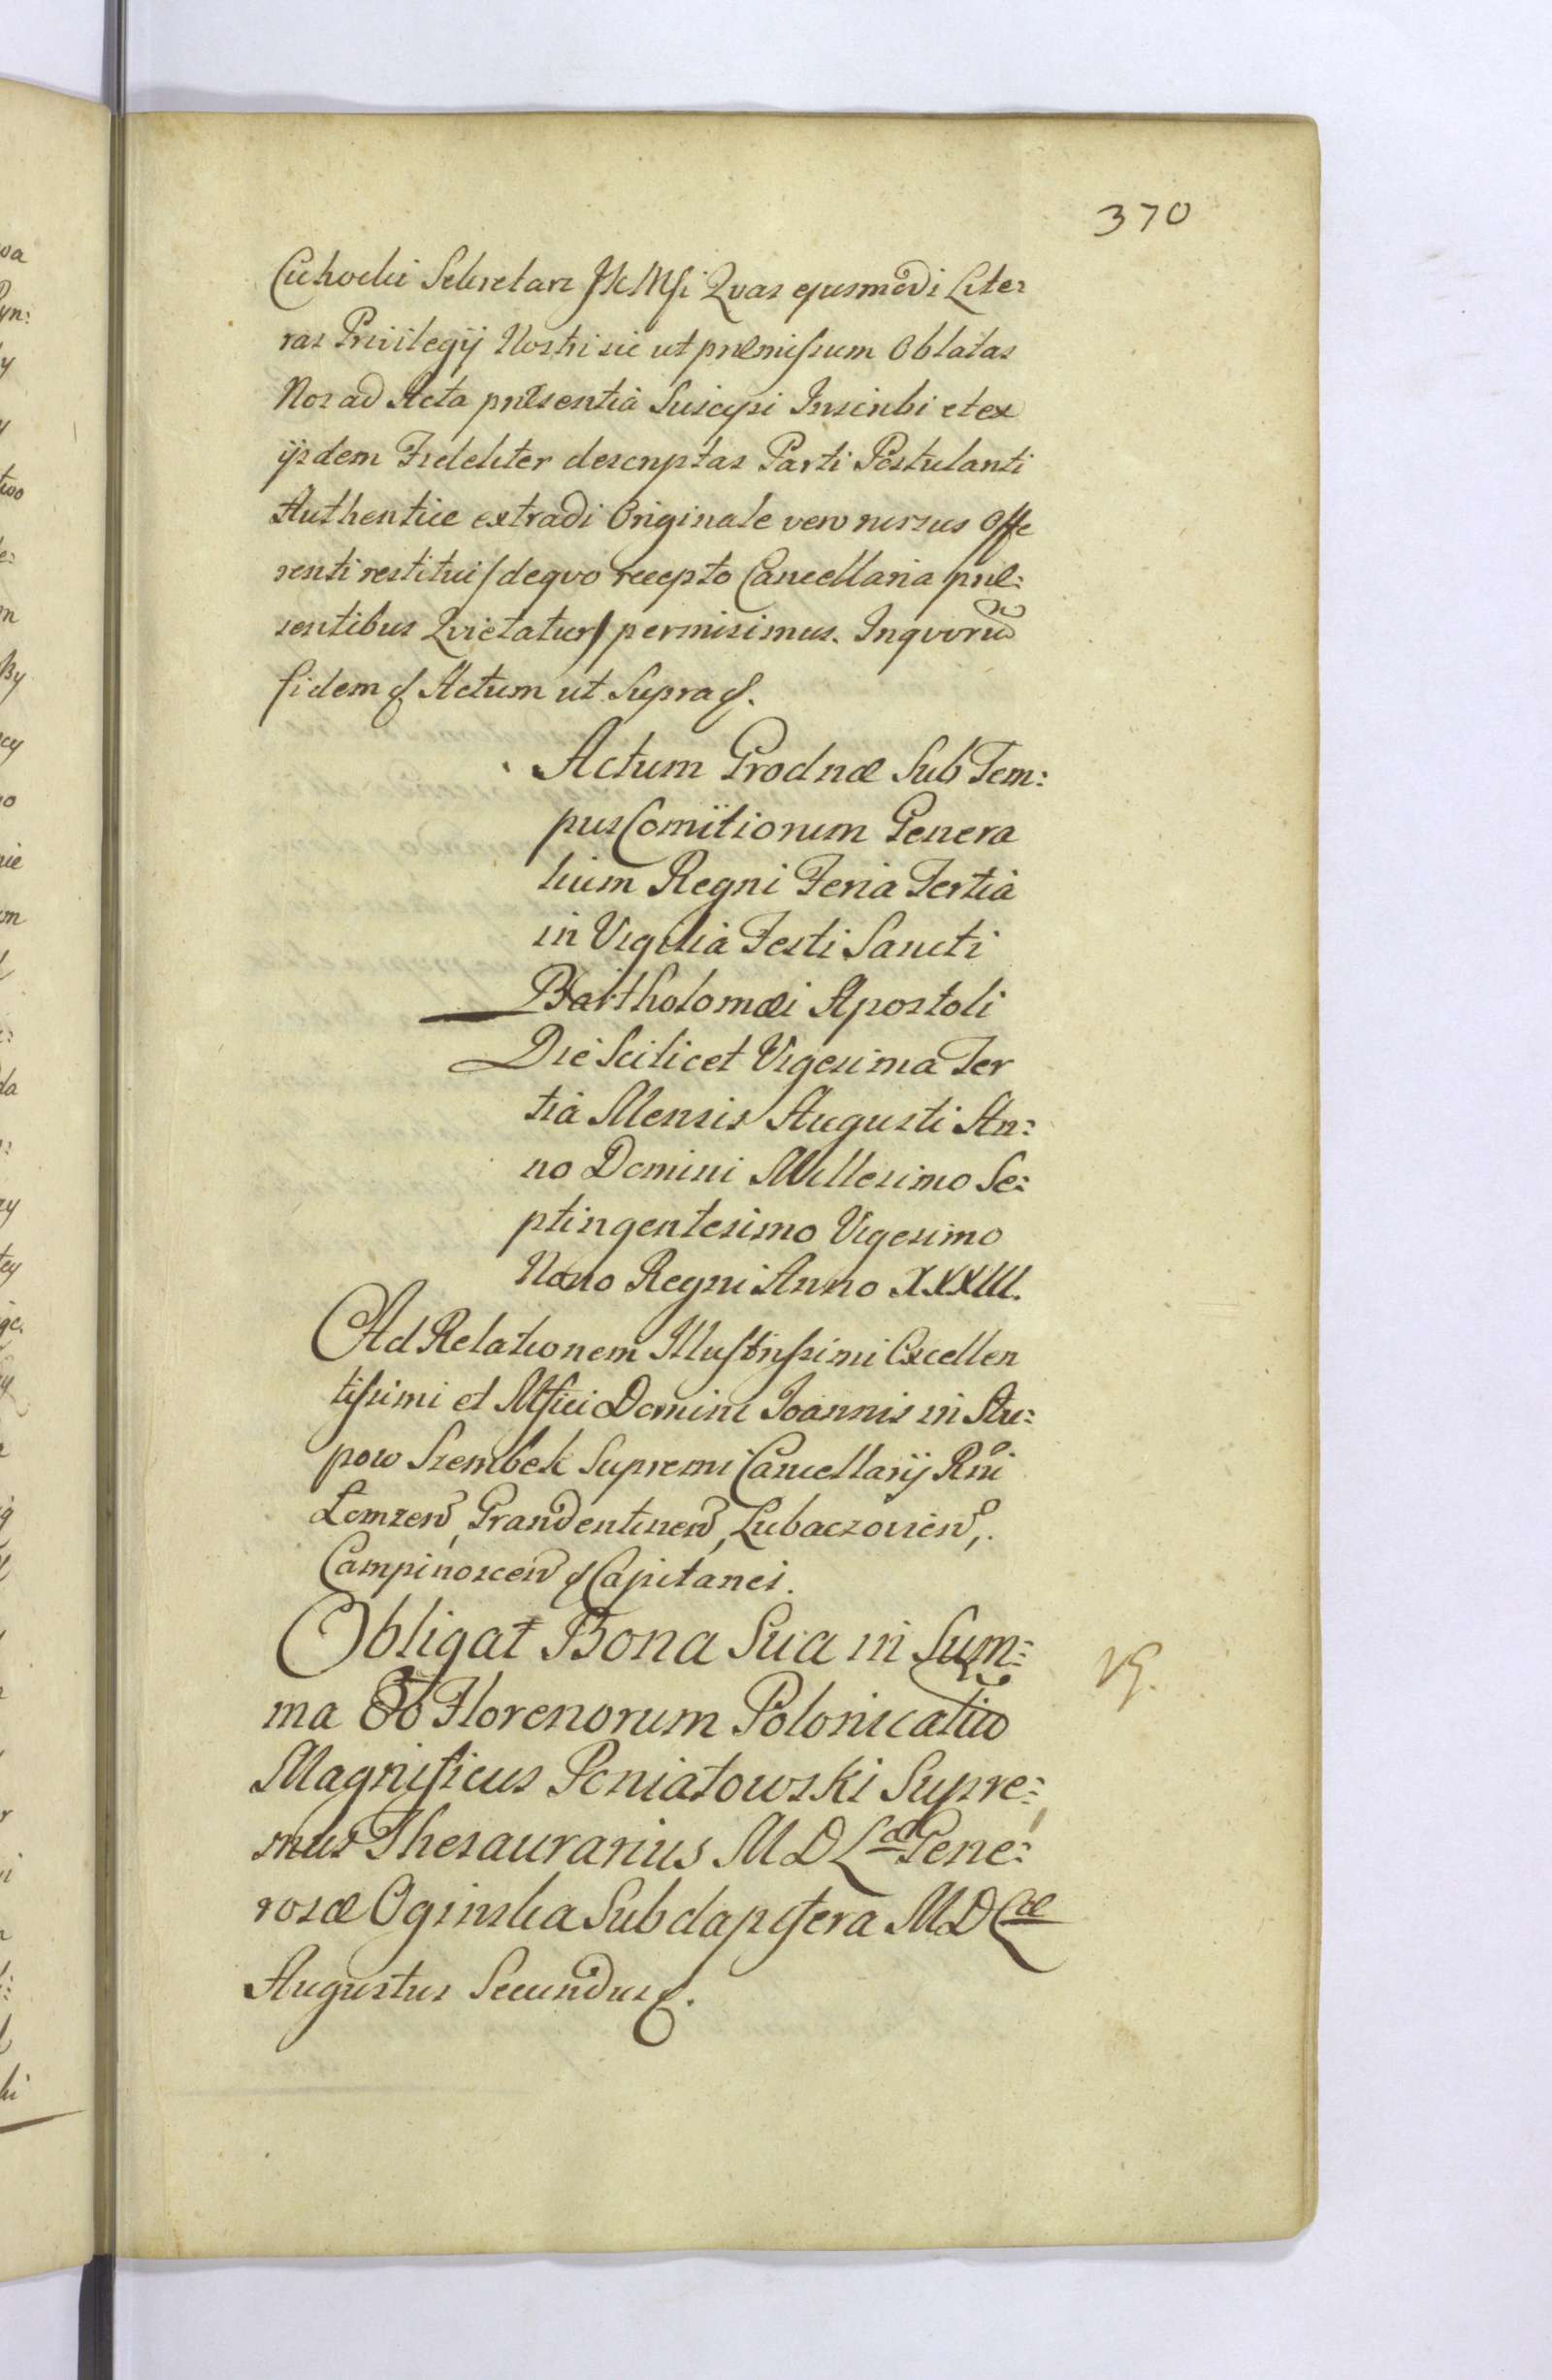 370
Cichocki Sekretarz JKMsi Quas ejusmodi Lite:
ras Privilegij Nostri sic ut præmissum Oblatas
Nos ad Acta præsentia Suscipi Inscribi et ex
ijsdem Fideliter descriptas Parti Postulanti
Authentice extradi Originale vero rursus Offe
renti restitui /de quo recepto Cancellaria præ:
sentibus Quietatur/ permisimus. In quorũ
fidem & Actum ut Supra &.
Actum Grodnæ Sub Tem:
pus Comitiorum Genera
lium Regni Feria Tertia
in Vigilia Festi Sancti
Bartholomæi Apostoli
Die Scilicet Vigesima Ter
tia Mensis Augusti An:
no Domini Millesimo Se:
ptingentesimo Vigesimo
Nono Regni Anno XXXIII.
Ad Relationem Illustrissimi Excellen
tissimi et Mfici Domini Joannis in Słu:
pow Szembek Supremi Cancellarij Rni
Lomzen, Grandentinen, Lubaczovien,
Campinoscen & Capitanei.
Obligat Bona Sua in Sum:
ma Florenorum Polonicaliũ
Magnificus Poniatowski Supre:
mus Thesaurarius M D Læ Gene:
rosæ Oginska Subdapifera M D Læ
Augustus Secundus &.